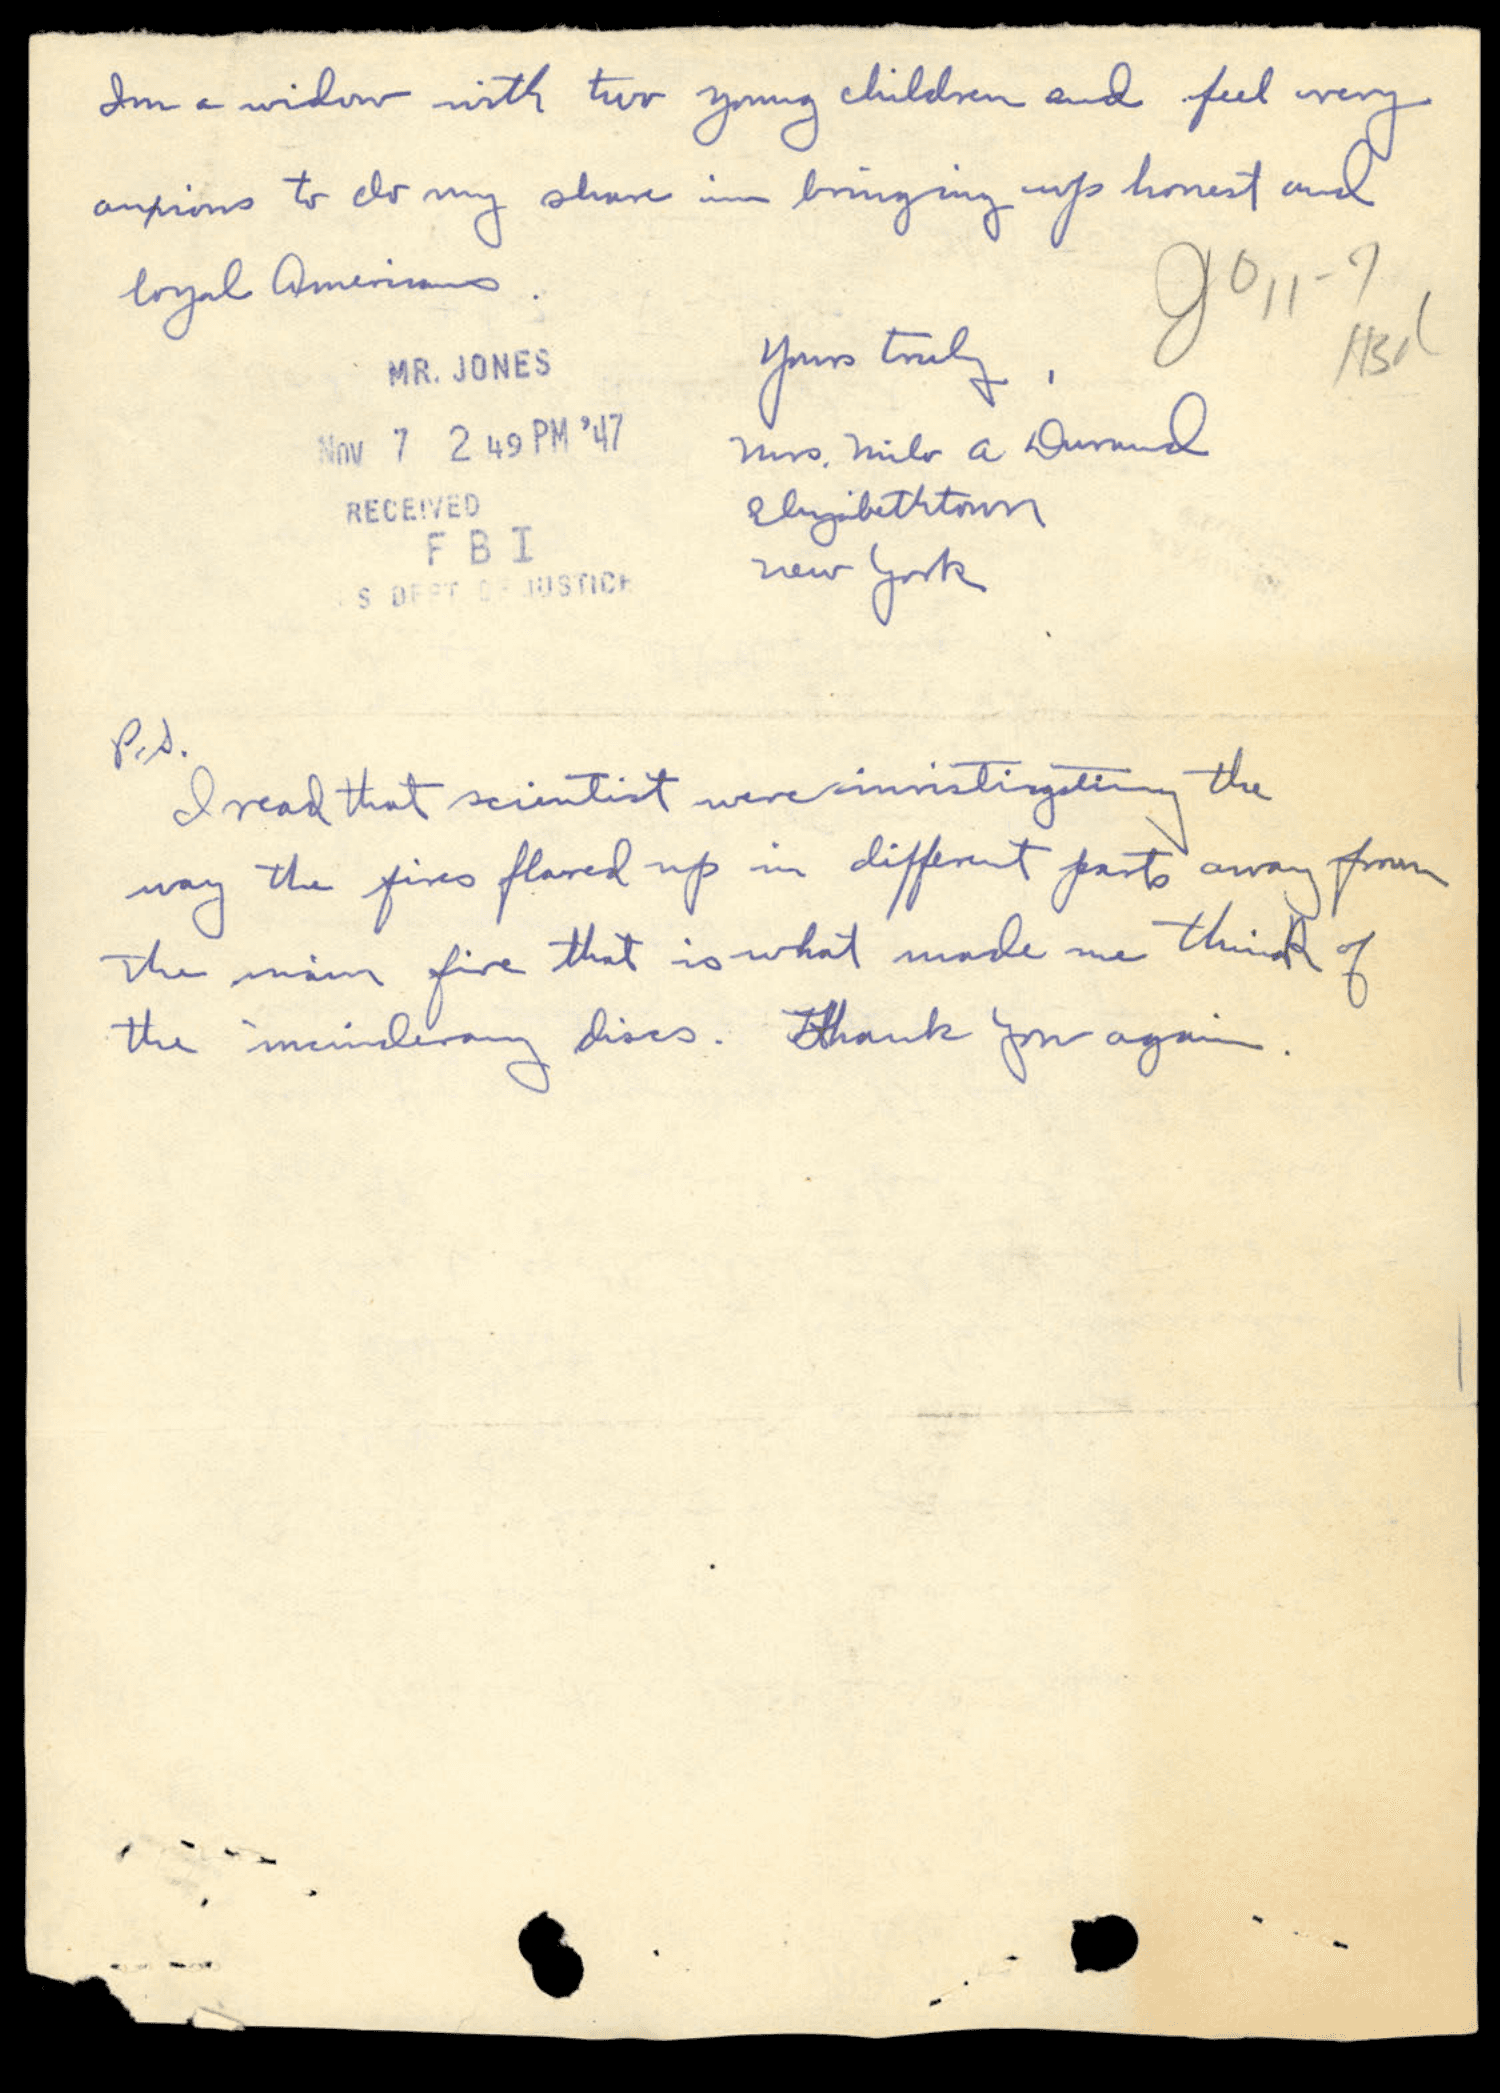 Im a widow with two young children and feel very
anxious to do my share in bringing up honest and
loyal Americans.
Yours truly,
Mrs. Milo A Durand
Elizabethtown
New York
MR. JONES
Nov 7 2 49 PM '47
RECEIVED
F B I
S DEPT OF JUSTICE
11-7
P.S.
I read that scientist were investigating the
way the fires flared up in different parts away from
the main fire that is what made me think of
the incinderary discs. Thank you again.